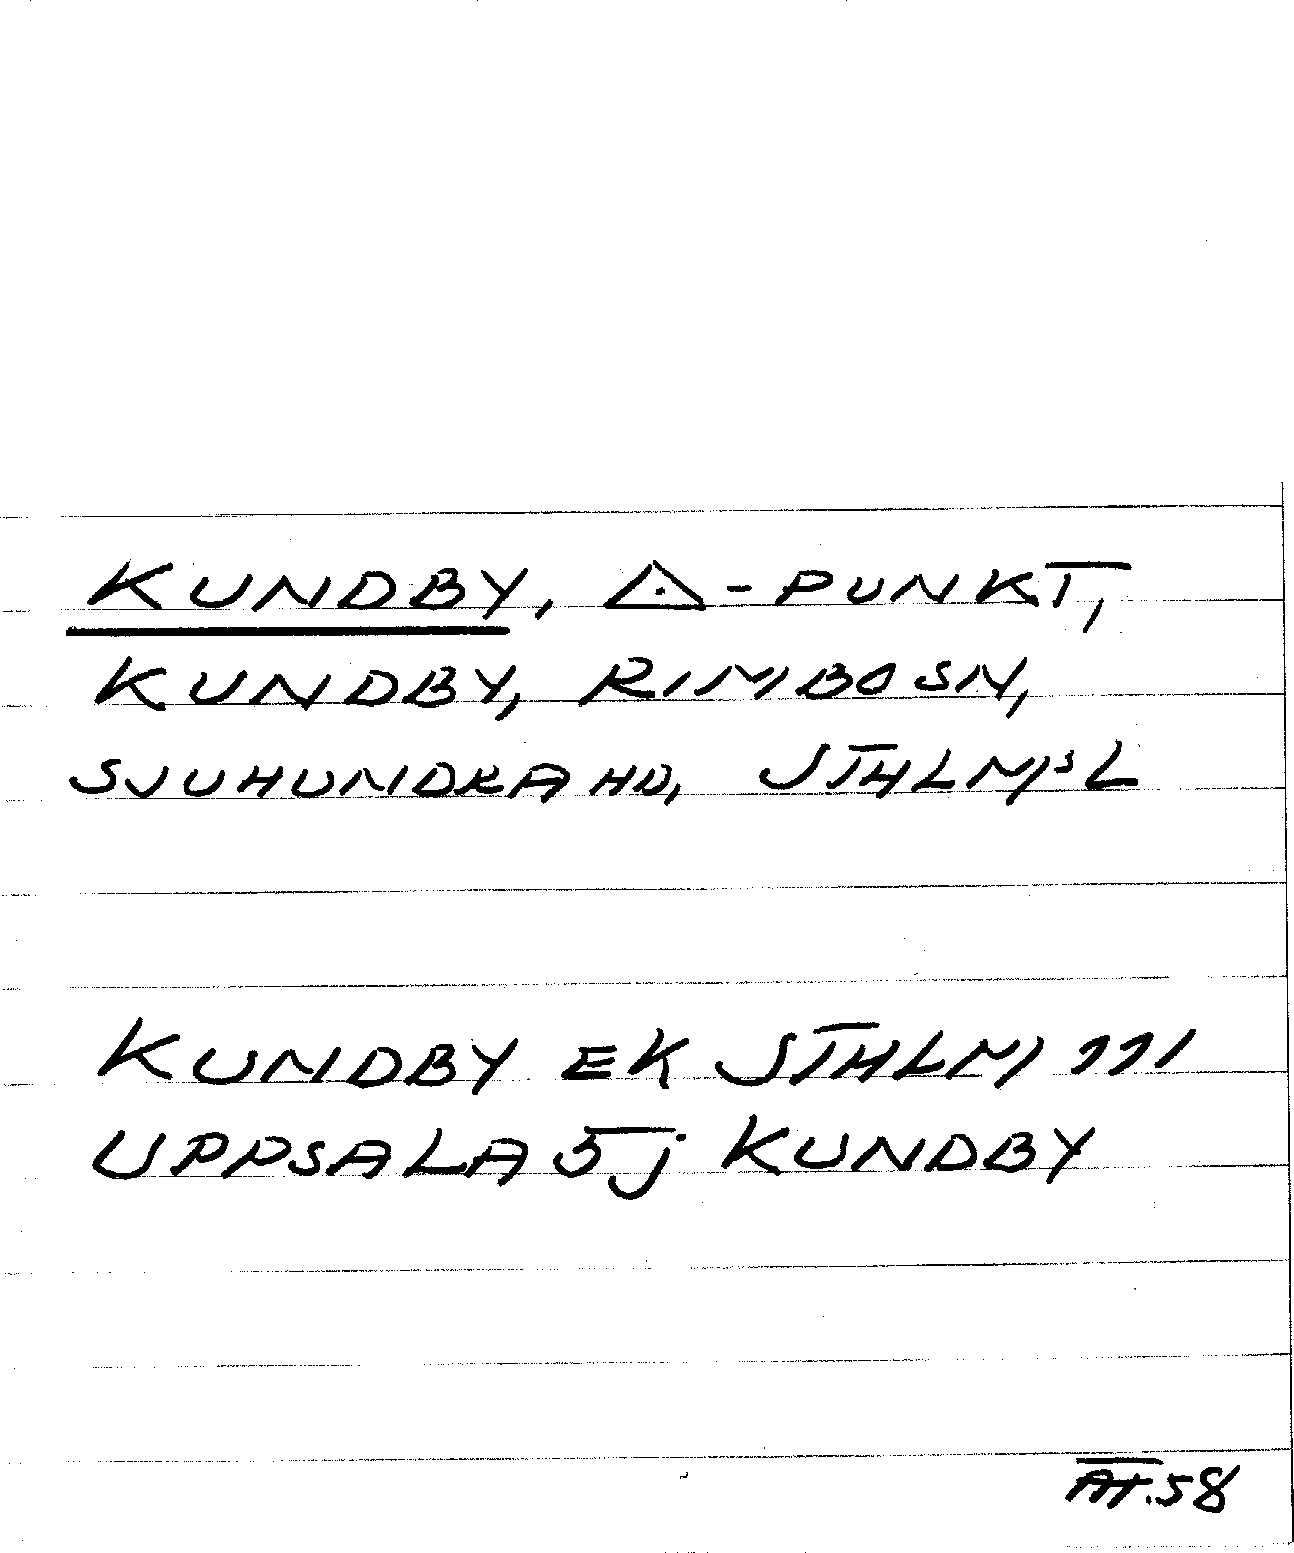 KUNDBY, △-PUNKT,
KUNDBY, RIMBO SN,
SJUHUNDRA HD, STHLMS L
KUNDBY EK STHLM 111
UPPSALA 5j KUNDBY
58